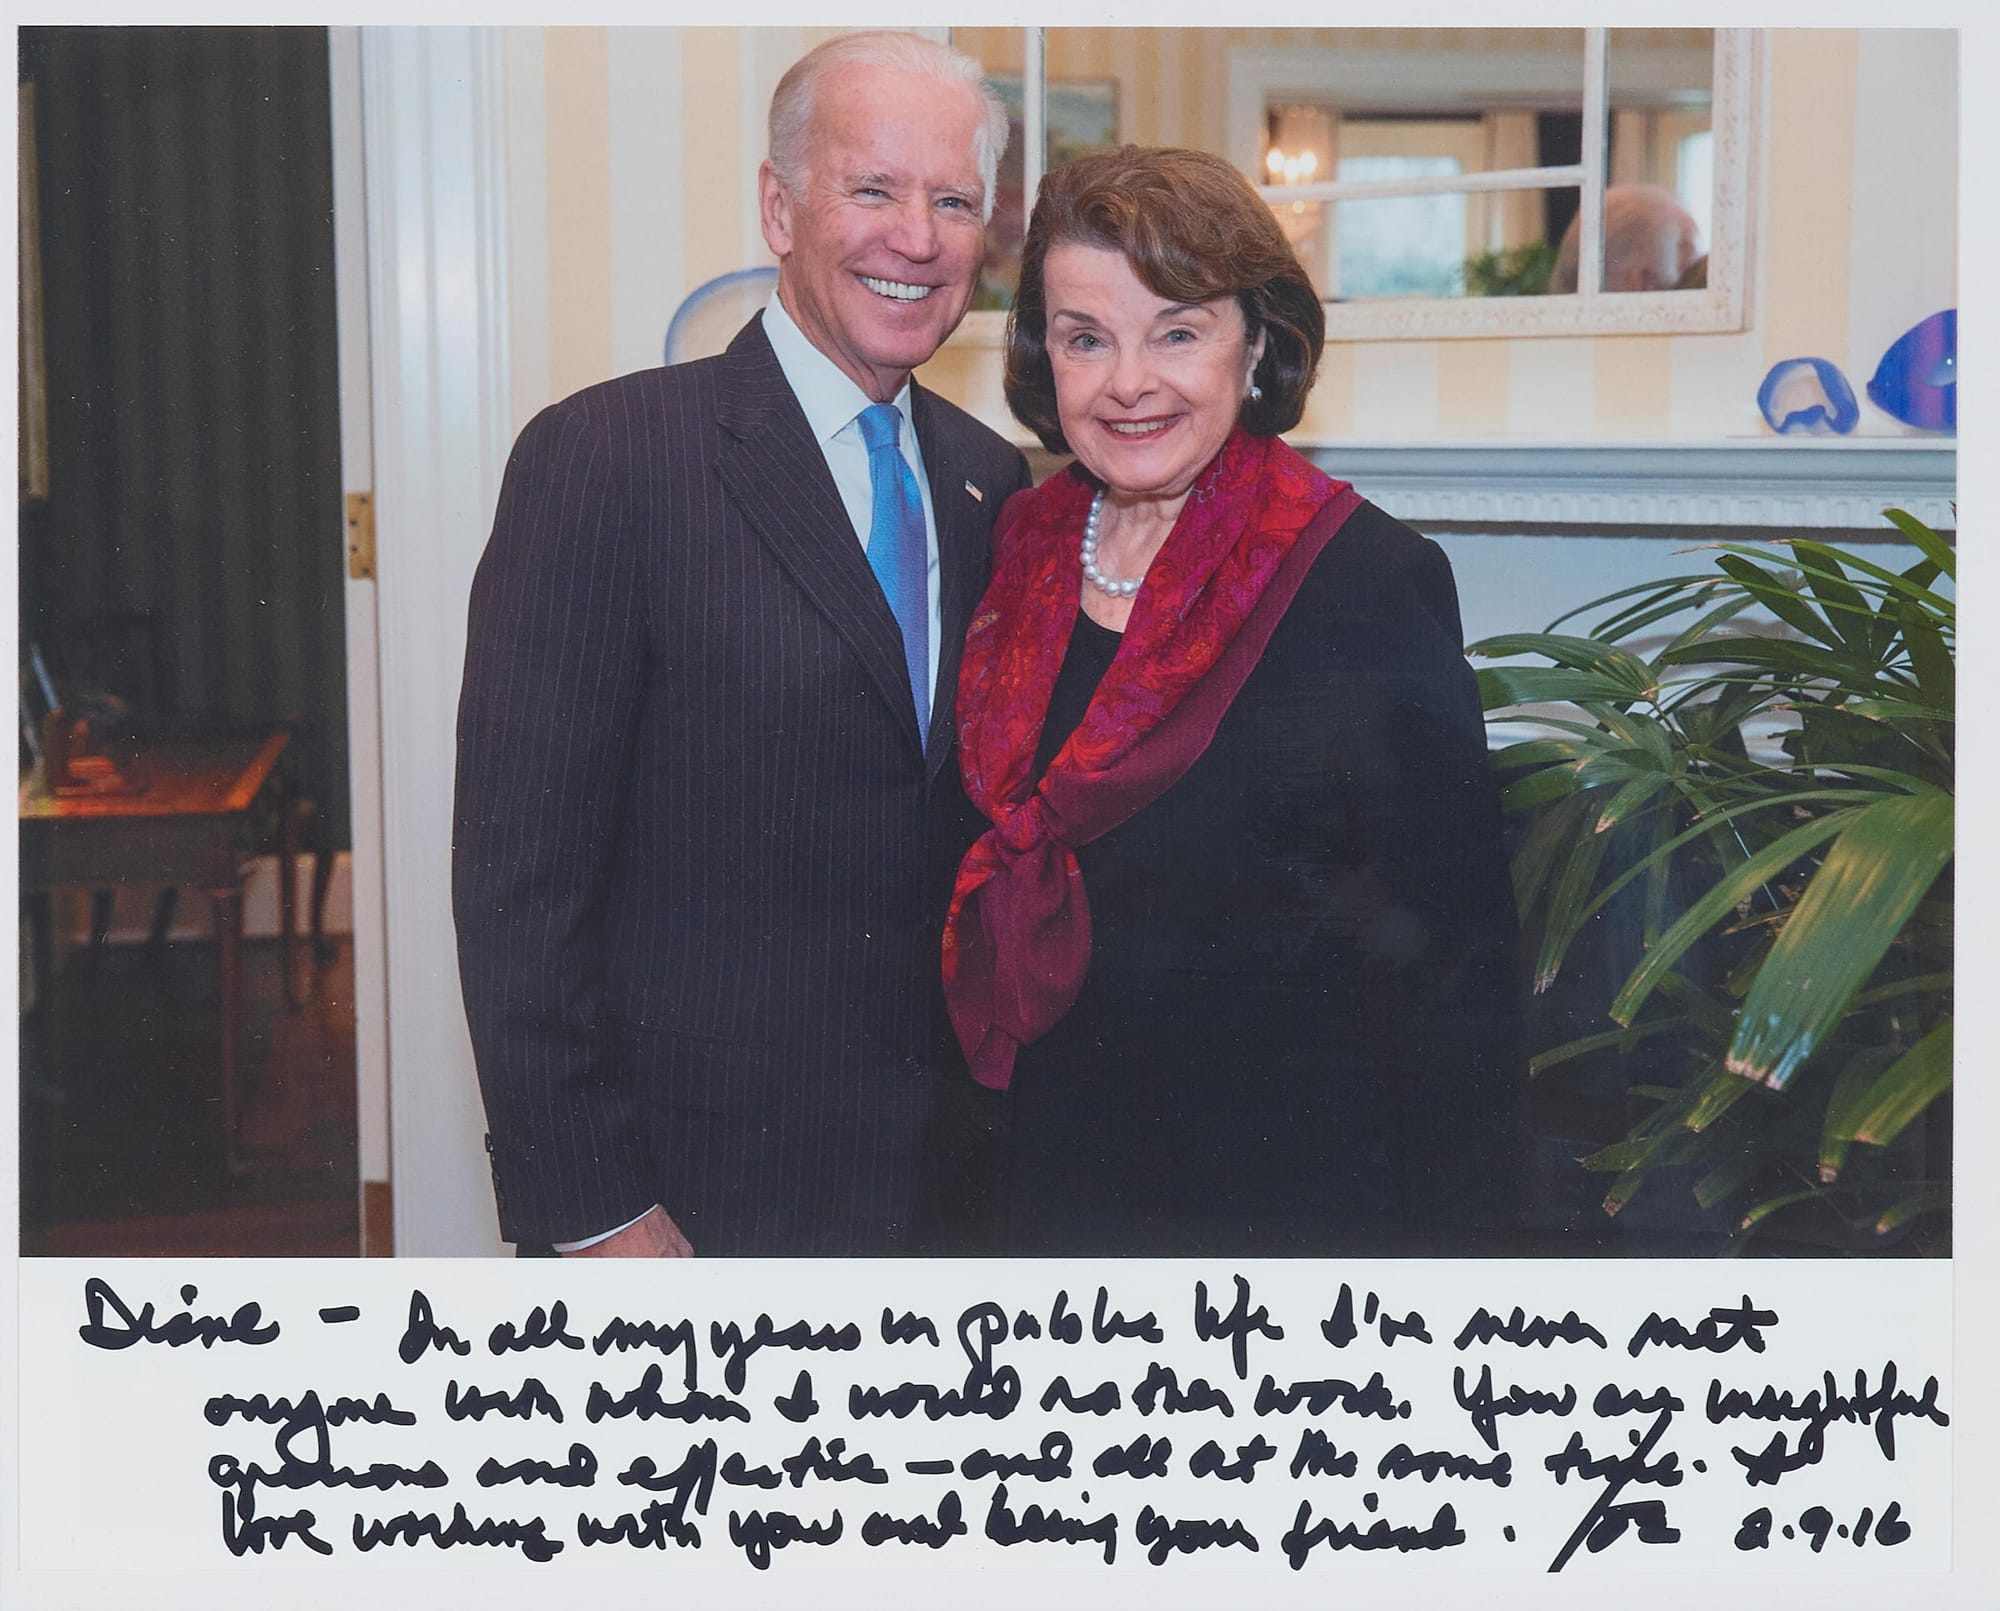 Diane - In all my years in public life I've never met
anyone with whom I would rather work. You are insightful
gracious and effective - and all at the same time. I
love working with you and being your friend. Joe 2.9.16